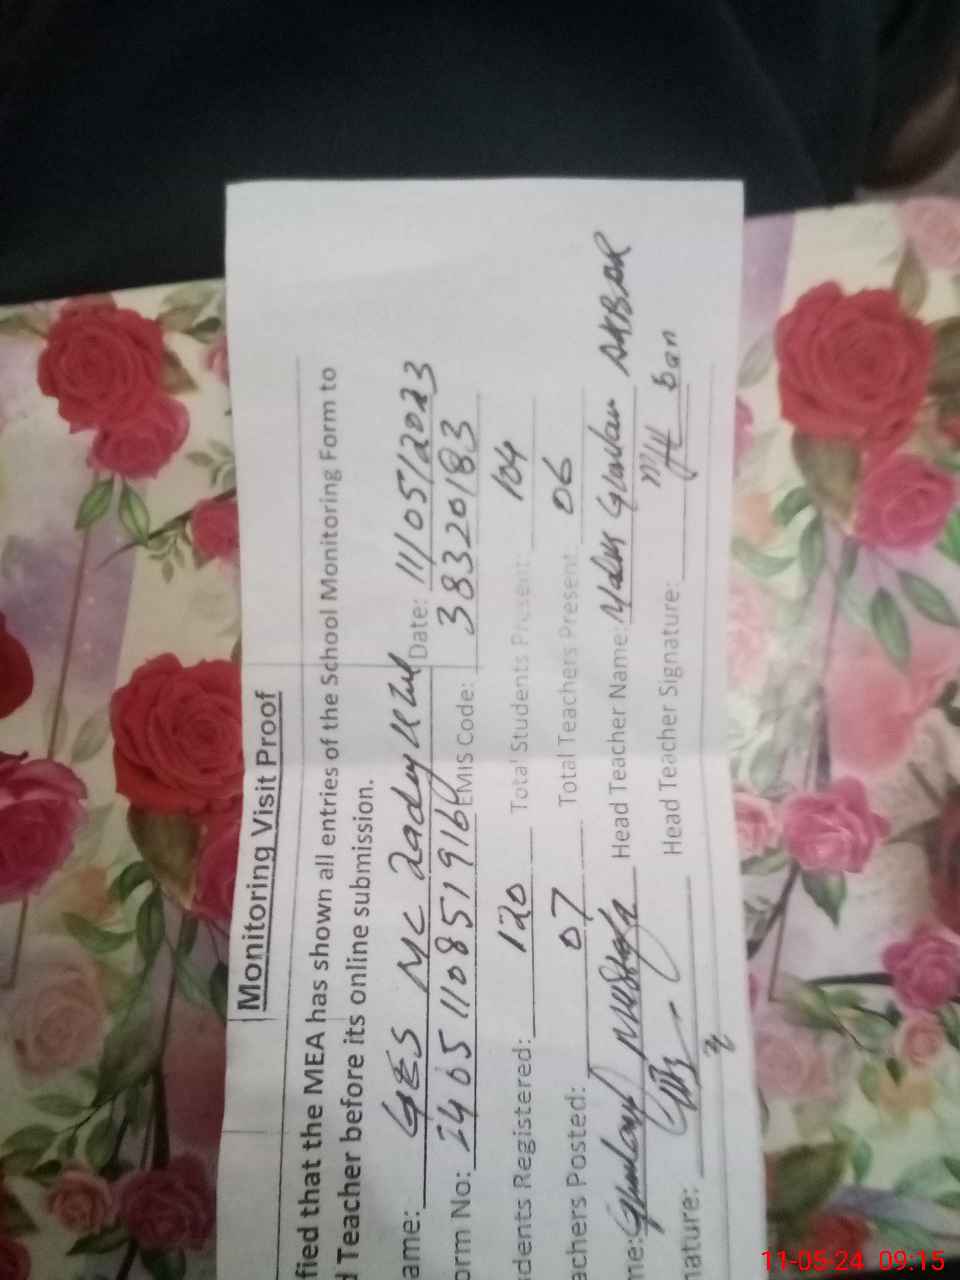 Monitoring Visit Proof
fied that the MEA has shown all entries of the School Monitoring Form to
d Teacher before its online submission.
ame: GES MC Date: 11/05/2023
orm No: 24051108519166 EMIS Code: 38320183
dents Registered: 120 Total Students Present: 104
achers Posted: 07 Total Teachers Present 06
me: Head Teacher Name: AKBAR
nature: Head Teacher Signature:
11-05-24 09:15